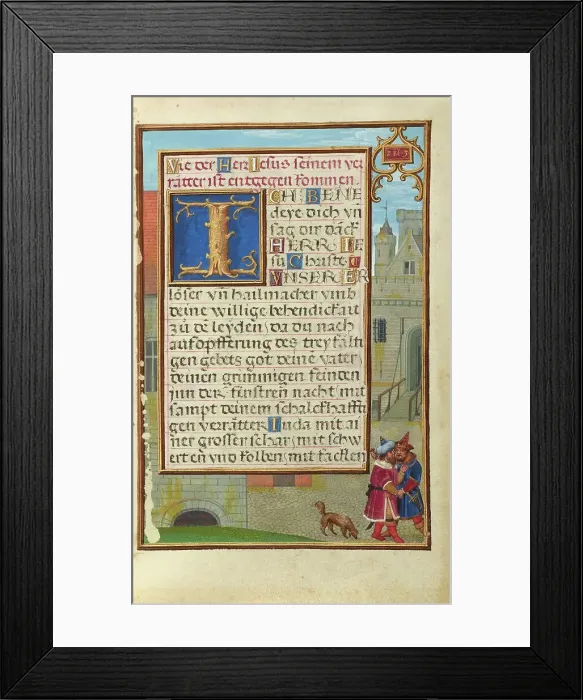 Vie der Her Iesus seinem ver
rätter ist entgegen kommen.
ICH BENE
deye dich vn̄
sag dir dāck
HERR IE
su Christe
VNSER ER
löser vn̄ hailmacher vmb
deine willige behendickait
zů dē leyden, da du nach
aufopfferung des treyfälti
gen gebets got deinē vater
deinen grim̄igen feinden
jnn der finstren nacht mit
sampt deinem schalckhaffti
gen verrätter Iuda mit ai
ner grosser schar, mit schw
erten vnd kolben, mit facklen